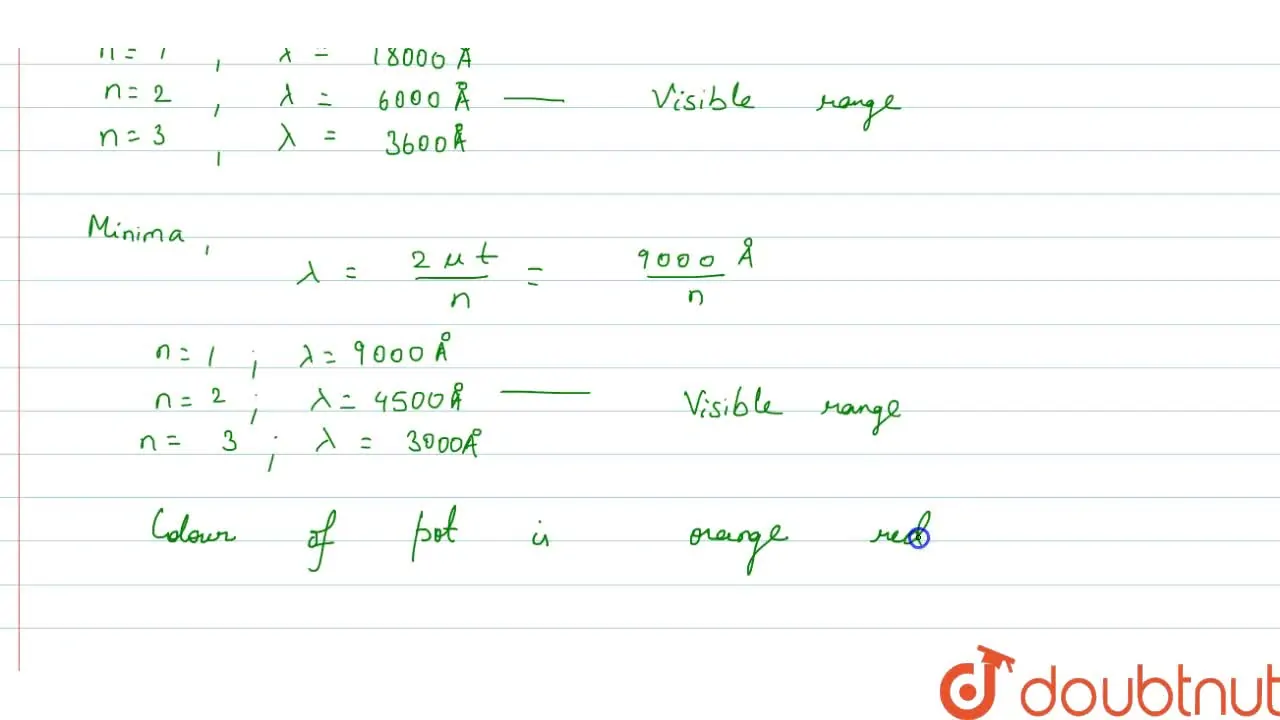 n = 1 , λ = 18000 Å
n = 2 , λ = 6000 Å — Visible range
n = 3 , λ = 3600 Å
Minima ,
λ = 2 μ t / n = 9000 Å / n
n = 1 ; λ = 9000 Å
n = 2 ; λ = 4500 Å — Visible range
n = 3 ; λ = 3000 Å
Colour of pot is orange red
doubtnut